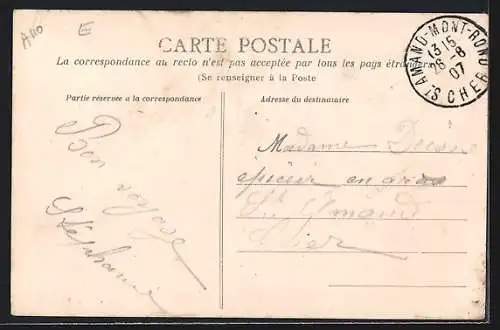 A110
E
CARTE POSTALE
La correspondance au recto n'est pas acceptée par tous les pays étrangers
(Se renseigner à la Poste
Partie réservée a la correspondance
Adresse du destinataire
ST AMAND-MONT-ROND
CHER
13 15
26 -8
07
Bon
voyage
Stéphanie
Madame
épicier en gros
St Amand
Cher